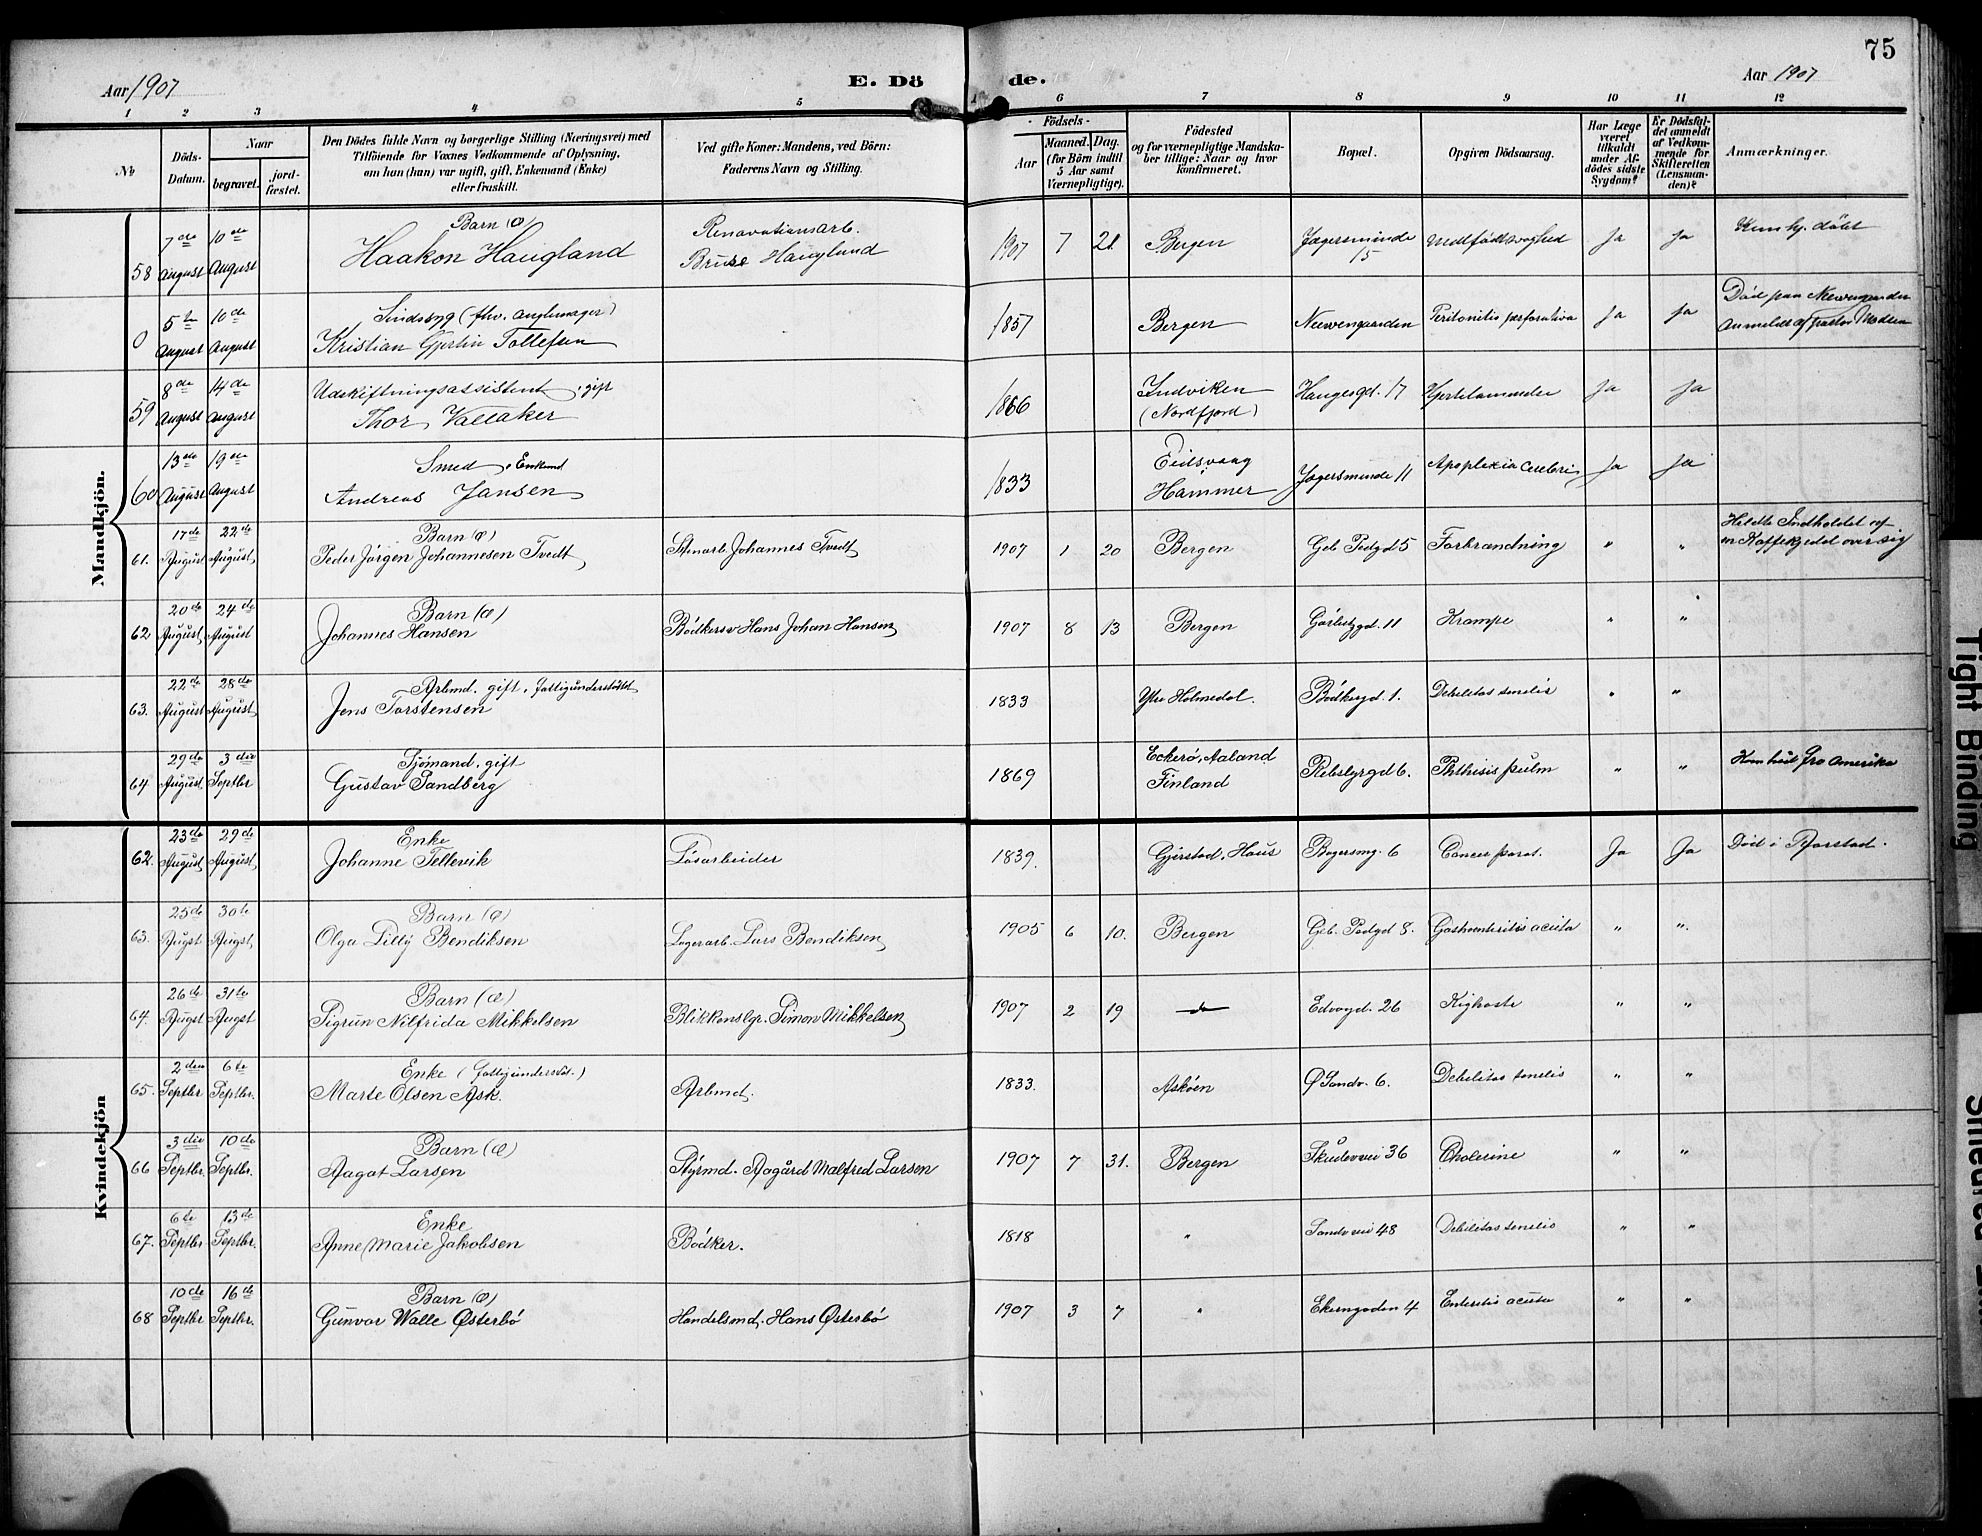 75
Aar 1907
E. Dö
de.
Aar 1907
1 2 3 4 5 6 7 8 9 10 11 12
No
Döds-
Datum.
Naar
begravet.
jord-
fæstet.
Den Dödes fulde Navn og borgerlige Stilling (Næringsvei) med
Tilföiende for Voxnes Vedkommende af Oplysning,
om han (hun) var ugift, gift, Enkemand (Enke)
eller fraskilt.
Ved gifte Koner: Mandens, ved Börn:
Faderens Navn og Stilling.
- Födsels -
Aar
Maaned. Dag.
(for Börn indtil
5 Aar samt
Værnepligtige).
Födested
og for værnepligtige Mandska-
ber tillige: Naar og hvor
konfirmeret.
Bopæl.
Opgiven Dödsaarsag.
Har Læge
været
tilkaldt
under Af-
dödes sidste
Sygdom?
Er Dödsfal-
det anmeldt
af Vedkom-
mende for
Skifteretten
(Lensman-
den)?
Anmærkninger.
Mandkjön.
58 7de August 10de August Barn (Æ)
Haakon Haugland Renovationsarb.
Haugland 1907 7 21 Bergen Jægersminde 15 Medfödt svaghed Ja Ja Kun hj. döbt
0 5te August 10de August Sindssyg (fhv. anglemager)
Kristian Gjertin Tollefsen 1857 Bergen Neevengaarden Peritonitis perforativa Ja Ja Död paa Neevengaarden
Anmeldt af Pastor Madsen
59 8de August 14de August Udskiftningsassistent, gift
Thor Vallaker 1866 Indviken
(Nordfjord) Haugesgd. 17 Hjertelammelse Ja Ja
60 13de August 19de August Smed, Enkemd
Andreas Jansen 1833 Eidsvaag
Hammer Jægersminde 11 Apoplexia cerebri Ja Ja
61. 17de August 22de August Barn (Æ)
Peder Jörgen Johannesen Tvedt Stenarb. Johannes Tvedt 1907 1 20 Bergen Geb. Pedgd 5 Forbrænding " " Heldte Indholdet af
en Kaffekjedel over sig
62 20de August 24de August Barn (Æ)
Johannes Hansen Bödkersv. Hans Johan Hansen 1907 8 13 Bergen 11 Krampe " "
63. 22de August 28de August Arbmd. gift, fattigunderstöttet
Jens Torstensen 1833 Ytre Holmedal. Bödkergd. 1. Debilitas senilis " "
64. 29de August 3die Septbr Sjömand, gift
Gustav Sandberg 1869 Eckerö, Aaland
Finland Rebslgrgd 6. Phthisis pulm " " Kom hid fra Amerika
Kvindekjön
62. 23de August 29de August Enke
Johanne Tellevik Lösarbeider 1839. Gjerstad, Haus 6 Cancer parot. Ja Ja Död i
63. 25de Augst 30te Augst Barn (Æ)
Olga Lilly Bendiksen Lagerarb. Lars Bendiksen 1905 6 10. Bergen Geb. Pedgd 8. Gastroenteritis acuta " "
64. 26de Augst 31te Augst Barn (Æ)
Sigrun Nilfrida Mikkelsen Blikkenslgr. Simon Mikkelsen 1907 2 19 do Edvgd. 26 Kighoste " "
65. 2den Septbr 6te Septbr. Enke (fattigunderstöt.)
Marte Olsen Ask. Arbmd. 1833. Asköen Ø Sandv. 6. Debilitas senilis " "
66 3die Septbr. 10de Septbr. Barn (Æ)
Aagot Larsen Styrmd. Aagård Malfred Larsen 1907 7 31. Bergen Skudevei 36 Cholerine " "
67. 6te Septbr. 13de Septbr. Enke
Anne Marie Jakobsen Bödker. 1818 " Sandvei 48 Debilitas senilis " "
68 10de Septbr 16de Septbr. Barn (Æ)
Gunvor Walle Østerbö Handelsmd. Hans Østerbö 1907 3 7 " Ekerngaden 4 Enteritis acuta " "
Tight Binding